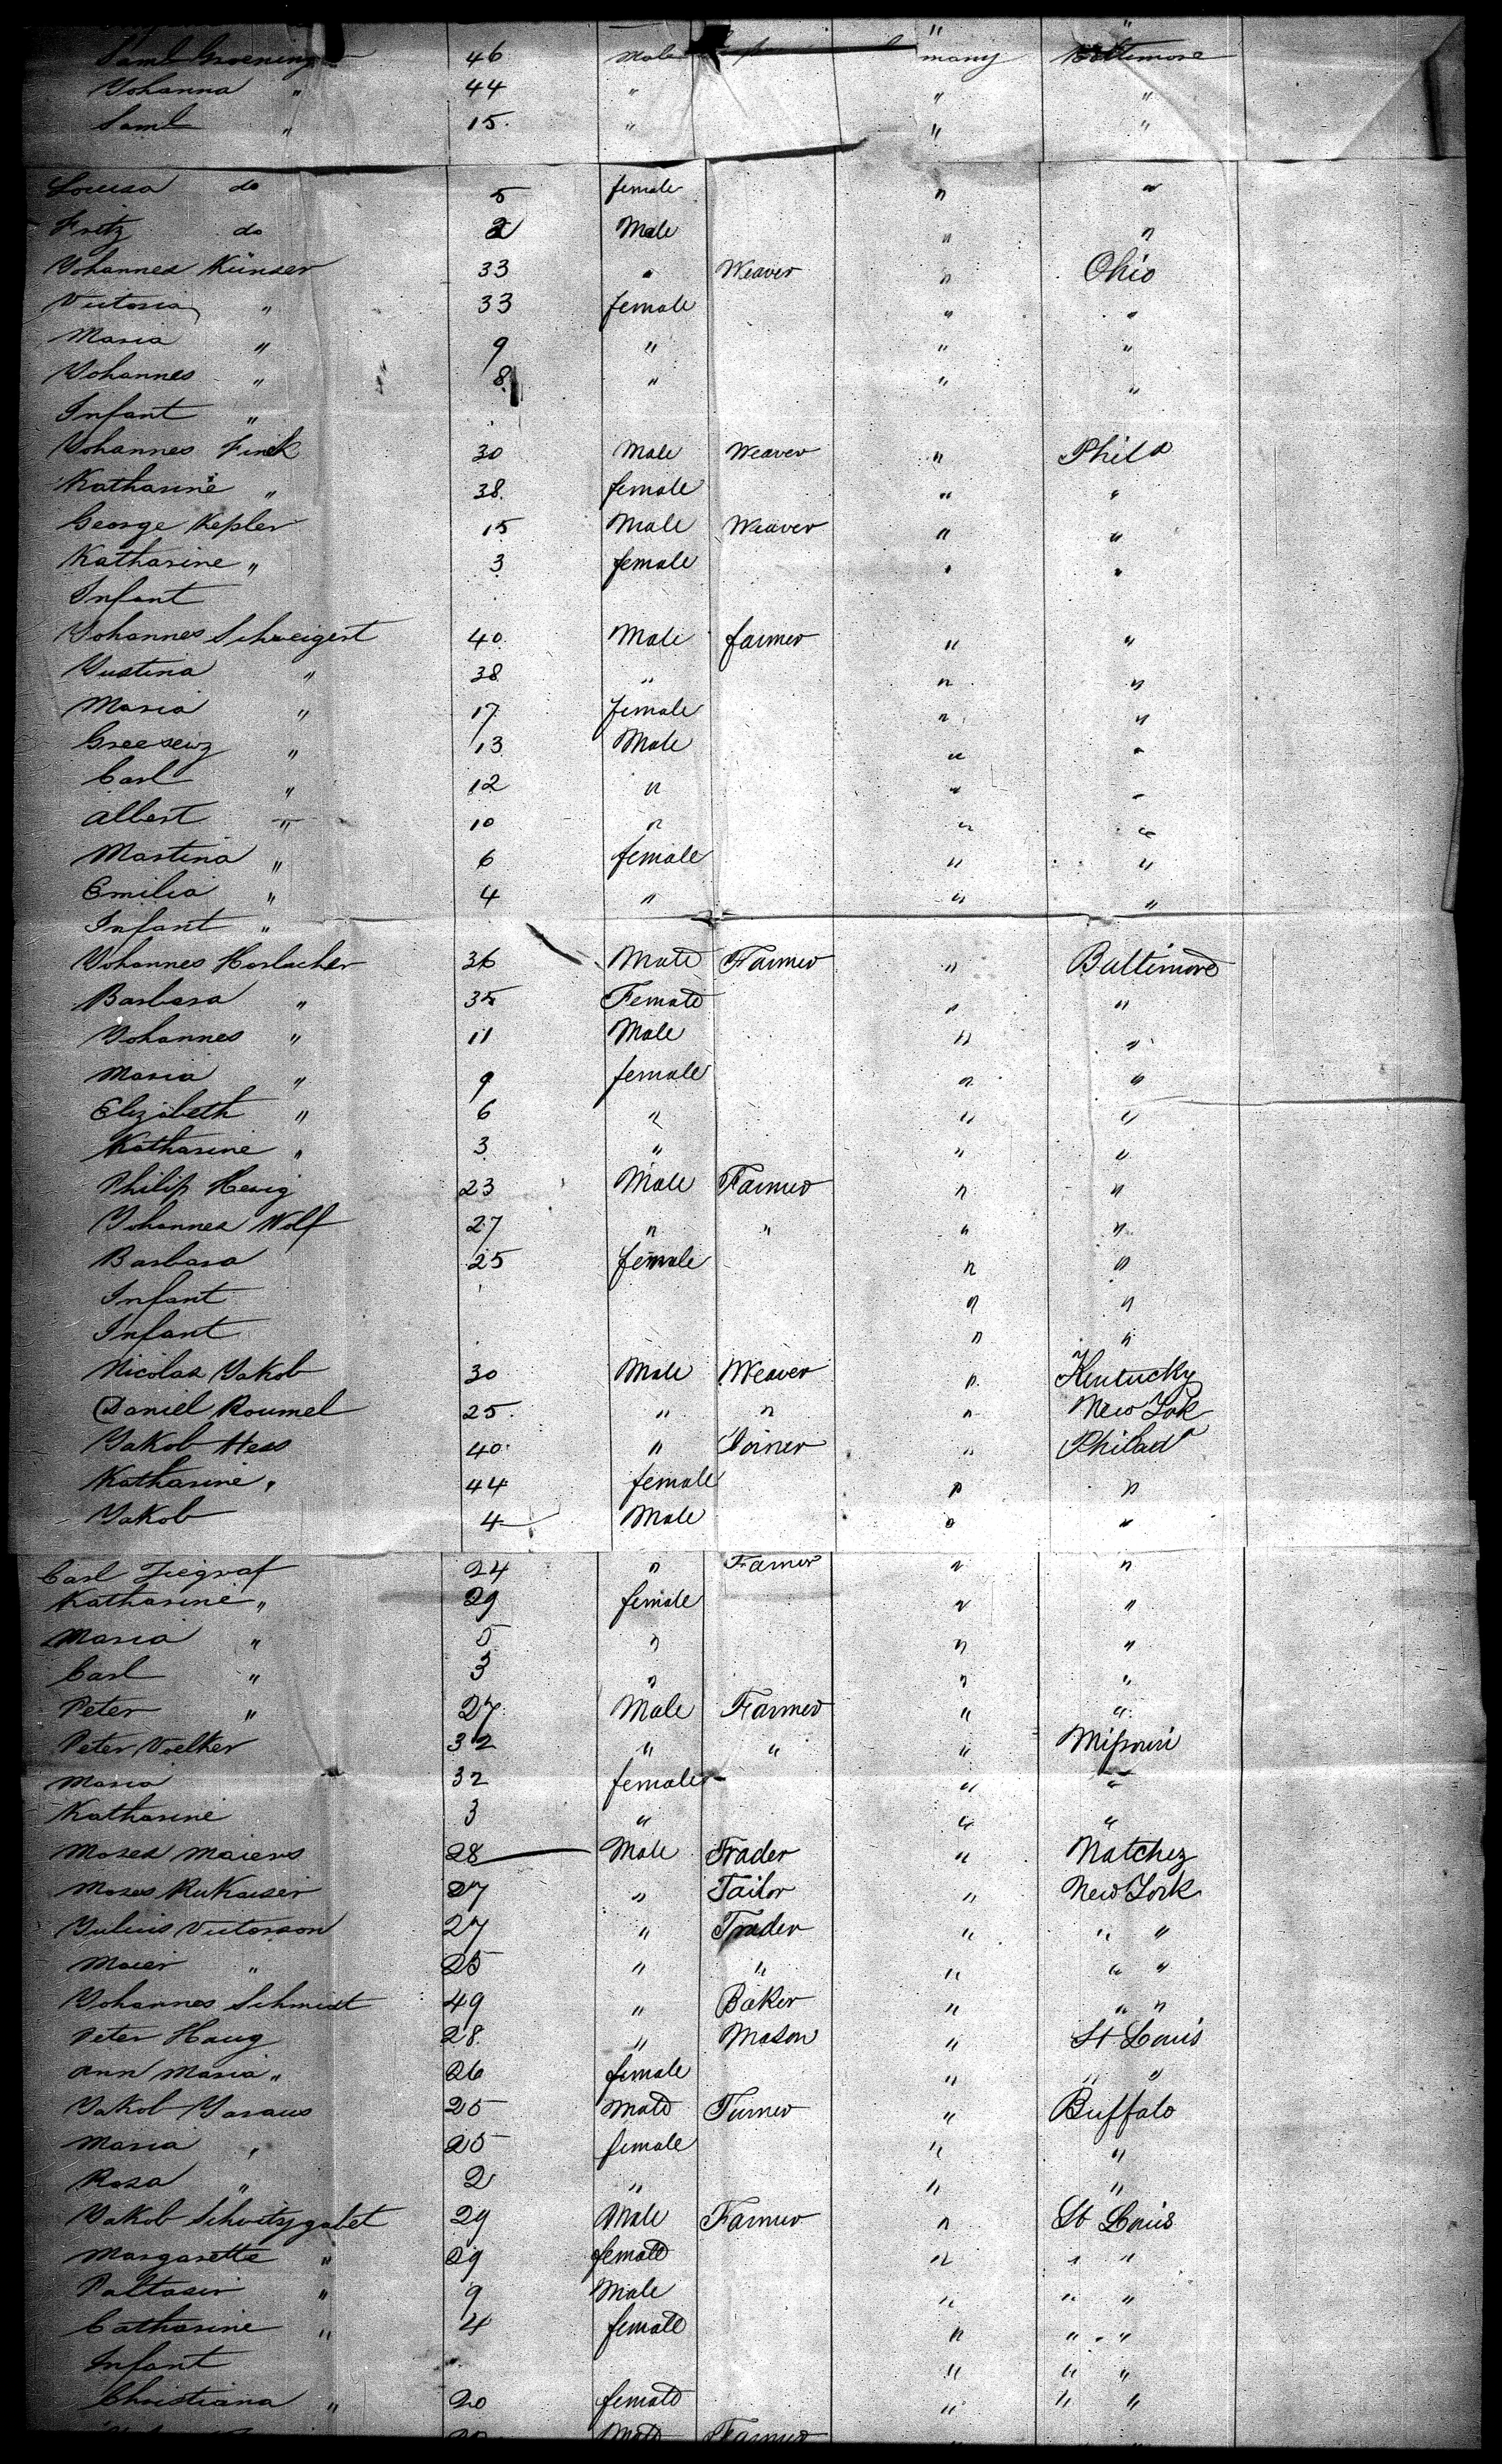 " "
Saml Groening 46 Male many Baltimore
Johanna " 44 " " "
Saml " 15 " " "
Louisa do 5 female " "
Fritz do 2 Male " "
Johannes Künser 33 " Weaver " Ohio
Victoria " 33 female " "
Maria " 9 " " "
Johannes " 8 " " "
Infant "
Johannes Finck 30 Male Weaver " Phila
Katharine " 38 female " "
George Kepler 15 Male Weaver " "
Katharine " 3 female " "
Infant
Johannes Schweigert 40 Male farmer " "
Justina " 38 " " "
Maria " 17 female " "
" 13 Male " "
Carl " 12 " " "
Albert " 10 " " "
Martina " 6 female " "
Emilia " 4 " " "
Infant "
Johannes Horlacher 36 Male Farmer " Baltimore
Barbara " 35 Female " "
Johannes " 11 Male " "
Maria " 9 female " "
Elizabeth " 6 " " "
Katharine " 3 " " "
Philip Herig 23 Male Farmer " "
Johannes Wolf 27 " " " "
Barbara 25 female " "
Infant " "
Infant " "
Nicolas Jakob 30 Male Weaver " Kentucky
Daniel Roumel 25 " " " New York
Jakob Hess 40 " Joiner " Philad
Katharine " 44 female " "
Jakob 4 Male " "
Carl Ziegraf 24 " Farmer " "
Katharine " 29 female " "
Maria " 5 " " "
Carl " 3 " " "
Peter " 27 Male Farmer " "
Peter Voelker 32 " " " Missouri
Maria 32 female " "
Katharine 3 " " "
Moses Maiers 28 Male Trader " Natchez
Moses RuKaiser 27 " Tailor " New York
Julius Victorson 27 " Trader " " "
Maier " 25 " " " " "
Johannes Schmidt 49 " Baker " " "
Peter Haug 28 " Mason " St Louis
Ann Maria " 26 female " " "
Jakob Jaraus 25 Male Turner " Buffalo
Maria " 25 female " "
Rosa " 2 " " "
Jakob Schvitzgabet 29 Male Farmer " St Louis
Margarette " 29 female " " "
Paltasir " 9 Male " " "
Catharine " 4 female " " "
Infant " " "
Christiana " 20 female " " "
Male Farmer